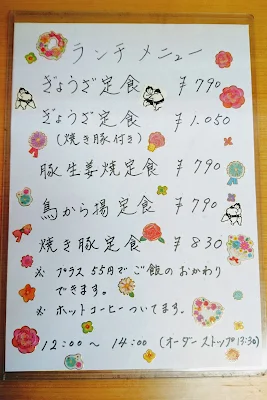 ランチメニュー
ぎょうざ定食 ¥790
ぎょうざ定食 ¥1.050
(焼き豚付き)
豚生姜焼定食 ¥790
鳥から揚定食 ¥790
焼き豚定食 ¥830
※ プラス55円でご飯のおかわり
できます。
※ ホットコーヒーついてます。
12:00〜14:00 (オーダーストップ13:30)